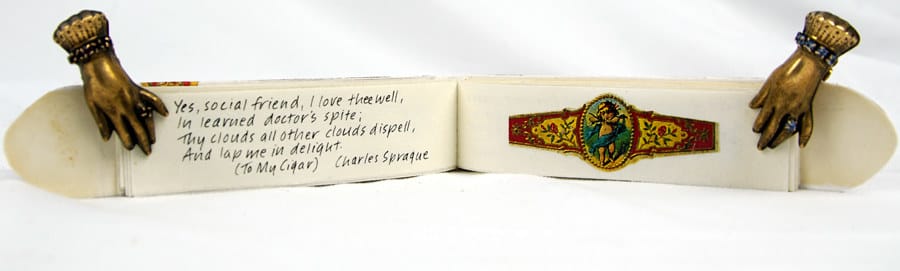 Yes, social friend, I love thee well,
In learned doctor's spite;
Thy clouds all other clouds dispell,
And lap me in delight.
(To My Cigar) Charles Sprague